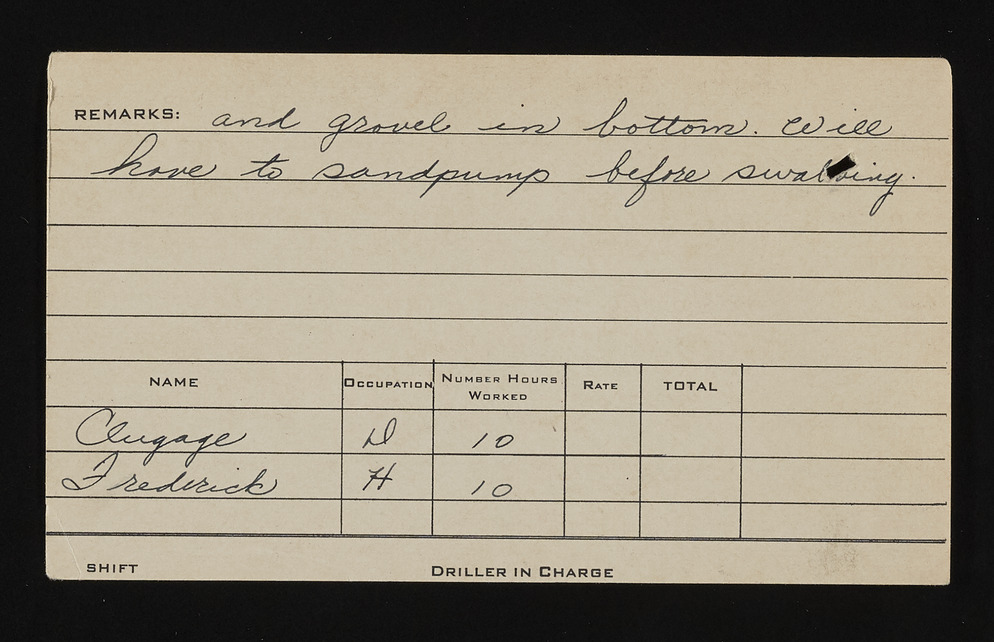 REMARKS: and gravel in bottom. Will
have to sandpump before swabbing.
NAME OCCUPATION NUMBER HOURS WORKED RATE TOTAL
Clugage D 10
Frederick H 10
SHIFT DRILLER IN CHARGE